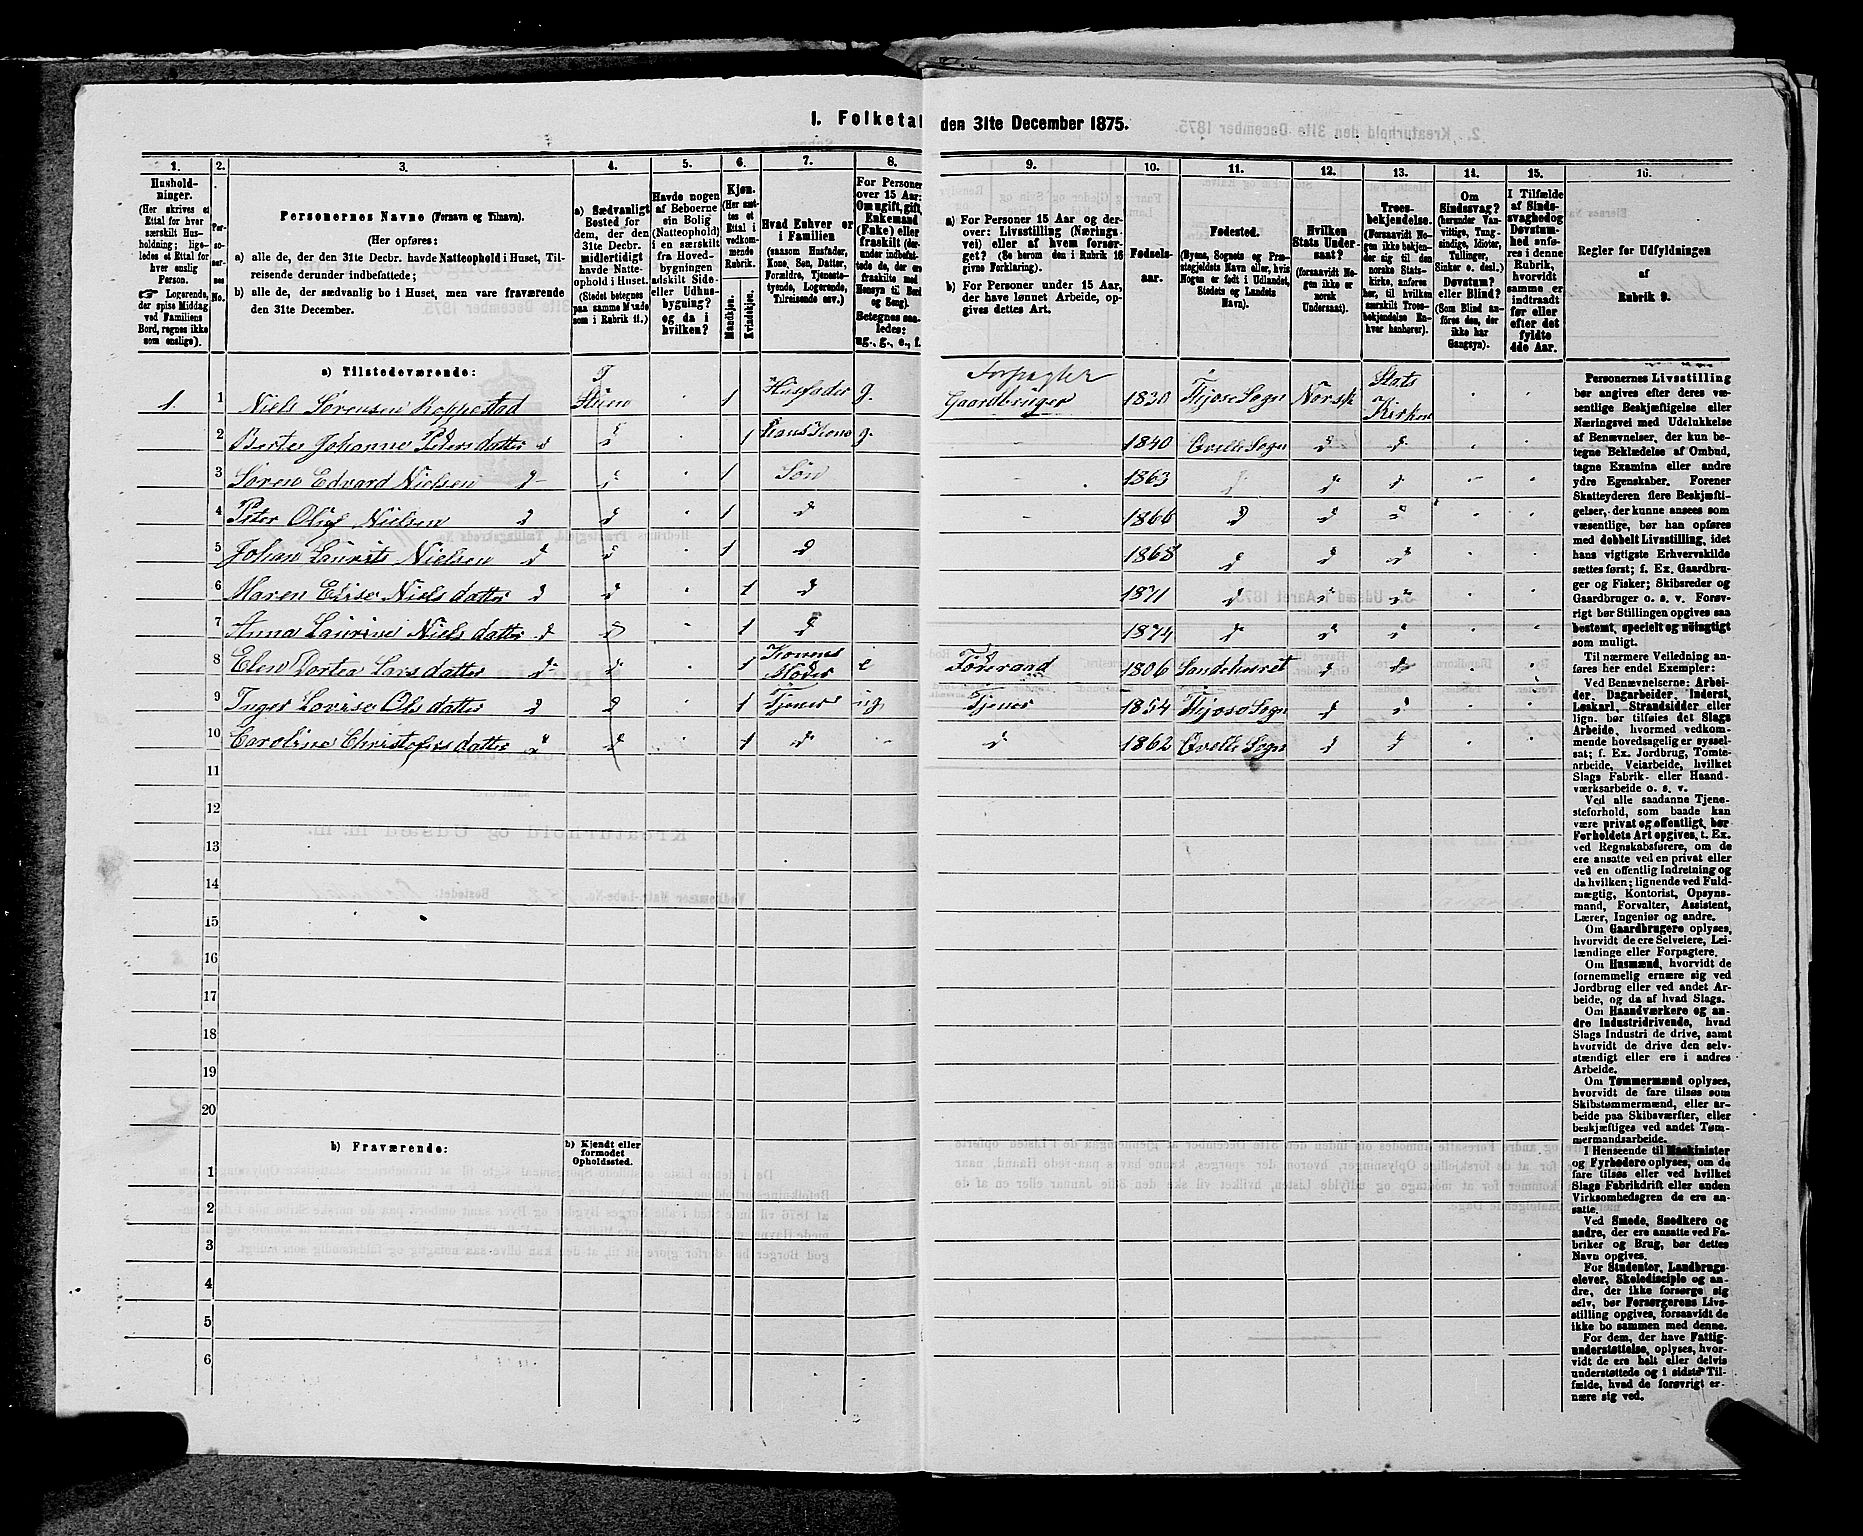 I. Folketal
den 31te December 1875.
1.
2.
3.
4.
5.
6.
7.
8.
9.
10.
11.
12.
13.
14.
15.
16.
Hushold-
ninger.
(Her skrives et
Ettal for hver
særskilt Hus-
holdning; lige-
ledes et Ettal
for hver
enslig
Person.
Logerende,
der spise Middag
ved Familiens
Bord, regnes ikke
som enslige).
Per-
so-
ner-
nes
No.
Personernes Navne (Fornavn og Tilnavn).
(Her opføres:
a) alle de, der den 31te Decbr. havde Natteophold i Huset, Til-
reisende derunder indbefattede;
b) alle de, der sædvanlig bo i Huset, men vare fraværende
den 31te December.
a) Sædvanligt
Bosted for
dem, der den
31te Decbr.
midlertidigt
havde Natte-
ophold i Huset.
(Stedet betegnes
paa samme Maade
som i Rubrik 11.)
Havde nogen
af Beboerne
ein Bolig
(Natteophold)
i en særskilt
fra Hoved-
bygningen
adskilt Side-
eller Udhus-
bygning?
og da i
hvilken?
Kjøn.
(Her sæt-
tes et
Ettal i
vedkom-
mende
Rubrik.
Mandkjøn.
Kvindekjøn.
Hvad Enhver er
i Familien
(saasom Husfader,
Kone, Søn, Datter,
Forældre, Tjeneste-
tyende, Logerende,
Tilreisende osv.)
For Personer
over 15 Aar:
Om ugift, gift,
Enkemand
(Enke) eller
fraskilt (der-
under indbefat-
tede de, der ere
fraskilte med
Hensyn til Bord
og Seng).
Betegnes saa-
ledes:
ug., g., e., f.
a) For Personer 15 Aar og der-
over: Livsstilling (Nærings-
vei) eller af hvem forsør-
get? (Se herom den i Rubrik 16
givne Forklaring).
b) For Personer under 15 Aar,
der have lønnet Arbeide, op-
gives dettes Art.
Fødsels-
aar.
Fødested.
(Byens, Sognets og Præs-
tegjeldets Navn eller, hvis
Nogen er født i Udlandet,
Stedets og Landets
Navn).
Hvilken
Stats Under-
saat?
(forsaavidt No-
gen ikke er
norsk
Undersaat).
Troes-
bekjendelse.
(Forsaavidt No-
gen ikke bekjen-
der sig til den
norske Stats-
kirke, anføres
her, til hvilken
særskilt Troes-
bekjendelse En-
hver henhører).
Om
Sindssvag?
(herunder Van-
vittige, Tung-
sindige, Idioter,
Tullinger,
Sinker o. desl.)
Døvstum?
eller Blind?
(Som Blind an-
føres den, der
ikke har
Gangsyn).
I Tilfælde
af Sinds-
svaghed og
Døvstum-
hed anfø-
res i denne
Rubrik,
hvorvidt
samme er
indtraadt
før eller
efter det
fyldte
4de Aar.
Regler for Udfyldningen
af
Rubrik 9.
a) Tilstedeværende:
1. 1 Niels Sørensen Roppestad Stuen T 1 Husfader g. Forpagter Gaardbruger 1830 Thjose Sogn Norsk Stats Kirken
2 Berte Johanne Pedersdatter d d 1 Hans Kone g. 1840 Qvelle Sogn d d
3 Søren Edvard Nielsen d d 1 Søn 1863 d d d
4 Peter Oluf Nielsen d d 1 d 1866 d d d
5 Johan Laurits Nielsen d d 1 d 1868 d d d
6 Maren Elise Nielsdatter d d 1 d 1871 d d d
7 Anna Laurine Nielsdatter d d 1 d 1874 d d d
8 Elen Dortea Larsdatter d d 1 Konens Moder e Föderaad 1806 Sandehered d d
9 Inger Lovise Olsdatter d d 1 Tjener ug Tjener 1854 Thjose Sogn d d
10 Caroline Christofersdatter d d 1 d d 1862 Qvelle Sogn d d
11
12
13
14
15
16
17
18
19
20
b) Fraværende:
b) Kjendt eller
formodet
Opholdssted.
1
2
3
4
5
6
Personernes Livsstilling
bør angives efter deres væ-
sentlige Beskjæftigelse eller
Næringsvei med Udelukkelse
af Benævnelser, der kun be-
tegne Beklædelse af Ombud,
tagne Examina eller andre
ydre Egenskaber. Forener
Skatteyderen flere Beskjæfti-
gelser, der kunne ansees som
væsentlige, bør han opføres
med dobbelt Livsstilling, idet
hans vigtigste Erhvervskilde
sættes først; f. Ex. Gaardbru-
ger og Fisker; Skibsreder og
Gaardbruger o. s. v. Forøv-
rigt bør Stillingen opgives saa
bestemt, specielt og nøiagtigt
som muligt.
Til nærmere Veiledning an-
føres her endel Exempler:
Ved Benævnelserne: Arbei-
der, Dagarbeider, Inderst,
Løskarl, Strandsidder eller
lign. bør tilføies det Slags
Arbeide, hvormed vedkom-
mende hovedsagelig er syssel-
sat; f. Ex. Jordbrug, Tomte-
arbeide, Veiarbeide, hvilket
Slags Fabrik- eller Haand-
værksarbeide o. s. v.
Ved alle saadanne Tjene-
steforhold, som baade kan
være privat og offentligt, bør
Forholdets Art opgives, t. Ex.
ved Regnskabsførere, om de
ere ansatte ved en privat eller
ved en offentlig Indretning og
da hvilken; lignende ved Fuld-
mægtig, Kontorist, Opsyns-
mand, Forvalter, Assistent,
Lærer, Ingeniør og andre.
Om Gaardbrugere oplyses,
hvorvidt de ere Selveiere, Lei-
lændinge eller Forpagtere.
Om Husmænd, hvorvidt de
fornemmelig ernære sig ved
Jordbrug eller ved andet Ar-
beide, og da af hvad Slags.
Om Haandværkere og an-
dre Industridrivende, hvad
Slags Industri de drive, samt
hvorvidt de drive den selv-
stændigt eller ere i andres
Arbeide.
Om Tømmermænd oplyses,
hvorvidt de fare tilsøs som
Skibstømmermænd, eller ar-
beide paa Skibsværfter, eller
beskjæftiges ved andet Tøm-
mermandsarbeide.
I Henseende til Maskinister
og Fyrbødere oplyses, om de
fare tilsøs eller ved hvilket
Slags Fabrikdrift eller anden
Virksomhedsgren de ere an-
satte.
Ved Smede, Snedkere og
andre, der ere ansatte ved Fa-
briker og Brug, bør dettes
Navn opgives.
For Studenter, Landbrugs-
elever, Skoledisciple og an-
dre, der ikke forsørge sig
selv, bør Forsørgerens Livs-
stilling opgives, forsaavidt de
ikke bo sammen med denne.
For dem, der have Fattig-
understøttelse, oplyses, hvor-
vidt de ere helt eller delvis
understøttede og i sidste Til-
fælde, hvad de forøvrigt er-
nære sig ved.